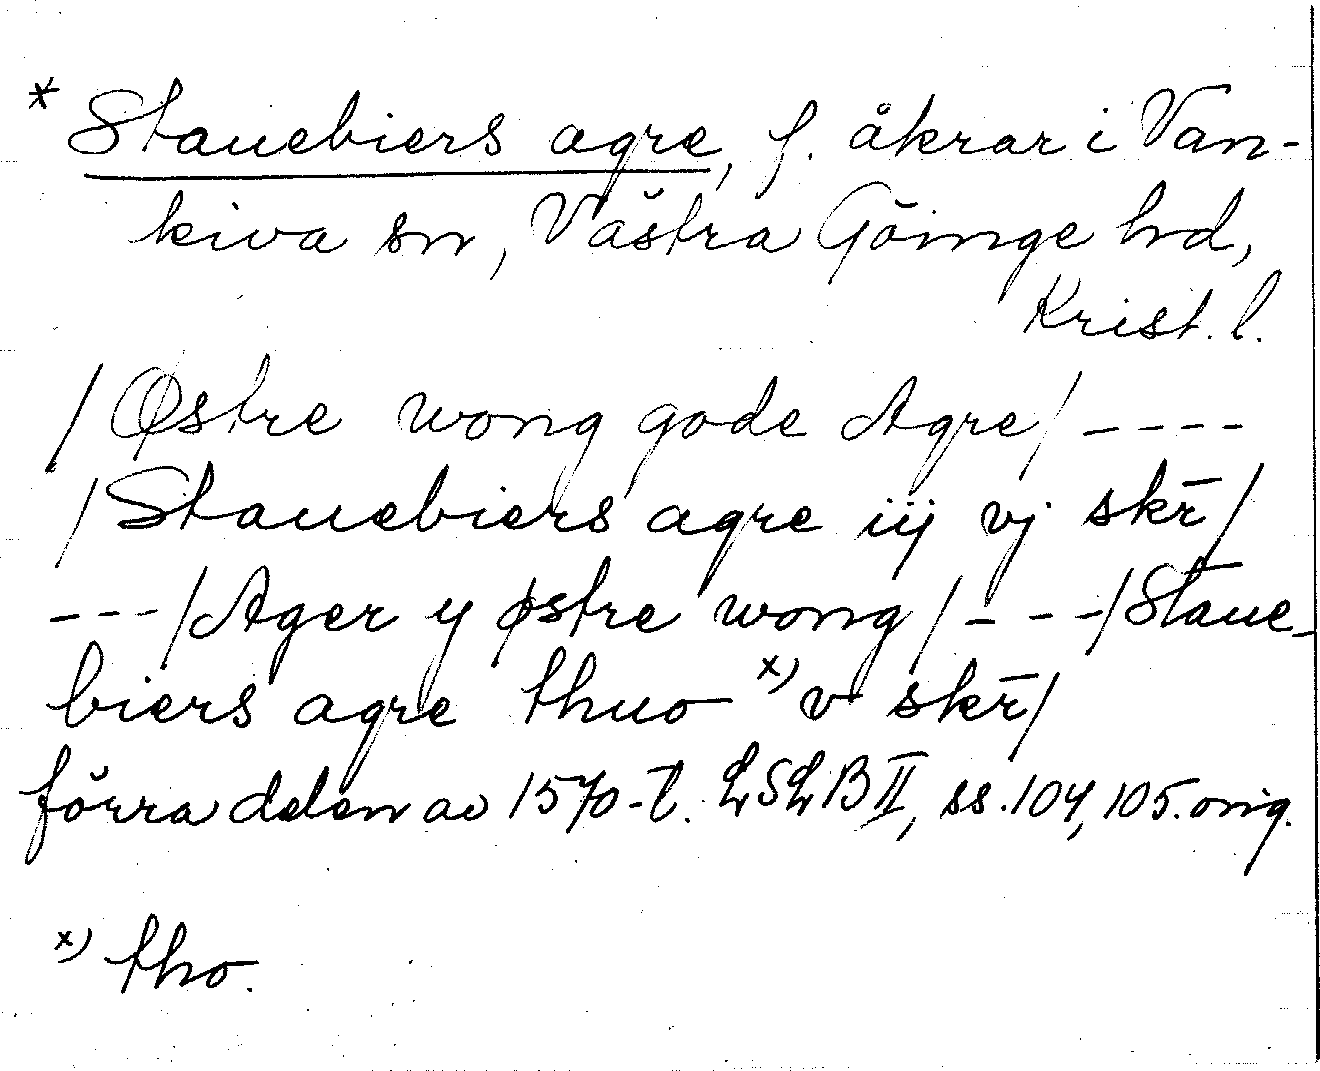 * Stauebiers agre, f. åkrar i Van-
kiva sn, Västra Göinge hd,
Krist. l.
/Østre wong gode Agre/ ----
/Stauebiers agre iij vj skr̄/
---/Ager y østre wong/---/Staue-
biers agre thuo x) v skr̄/
förra delen av 1570-t. LSLB II, ss. 104, 105. orig.
x) tho.